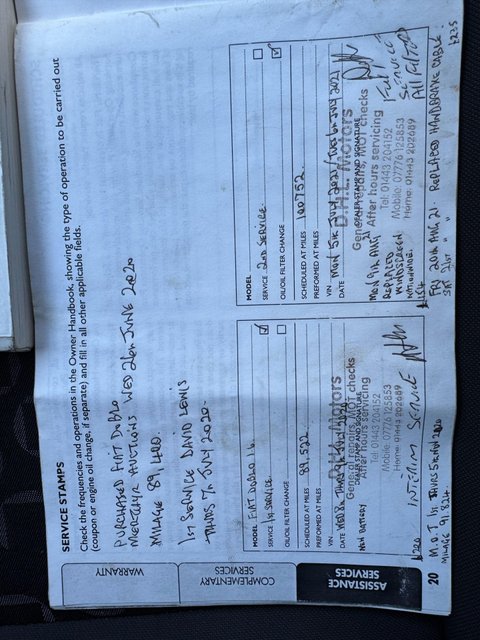 SERVICE STAMPS
Check the frequencies and operations in the Owner Handbook, showing the type of operation to be carried out
(coupon or engine oil change, if separate) and fill in all other applicable fields.
PURCHASED FIAT DOBLO
MERTHYR AUCTIONS WED 26TH JUNE 2020
MILAGE 89,400.
1ST SERVICE DAVID LEWIS
THURS 7TH JULY 2020.
MODEL FIAT DOBLO 1.6.
SERVICE 1ST SERVICE
OIL/OIL FILTER CHANGE
SCHEDULED AT MILES 89,522.
PREFORMED AT MILES
VIN
DATE
DEALER STAMP AND SIGNATURE
NEW BATTERY
D.H.L. Motors
General repairs, MOT checks
After hours servicing
Tel: 01443 204152
Mobile: 07776 125853
Home: 01443 202689
£200 INTERIM SERVICE
20 M.O.T. THURS 5TH NOV 2020
MILAGE 91,824
MODEL
SERVICE 2ND SERVICE.
OIL/OIL FILTER CHANGE
SCHEDULED AT MILES 100752.
PREFORMED AT MILES
VIN
DATE MON 5TH JULY 2021/TUES 6TH JULY 2021
DEALER STAMP AND SIGNATURE
D.H.L. Motors
General repairs, MOT checks
After hours servicing
Tel: 01443 204152
Mobile: 07776 125853
Home: 01443 202689
FULL
SERVICE
All FILTERS
MON 9TH AUG 21
REPLACED
WINDSCREEN
NATIONWIDE.
FRI 20TH AUG 21 REPLACED HANDBRAKE CABLE.
SAT 21ST " " £235
WARRANTY
COMPLEMENTARY
SERVICES
ASSISTANCE
SERVICES